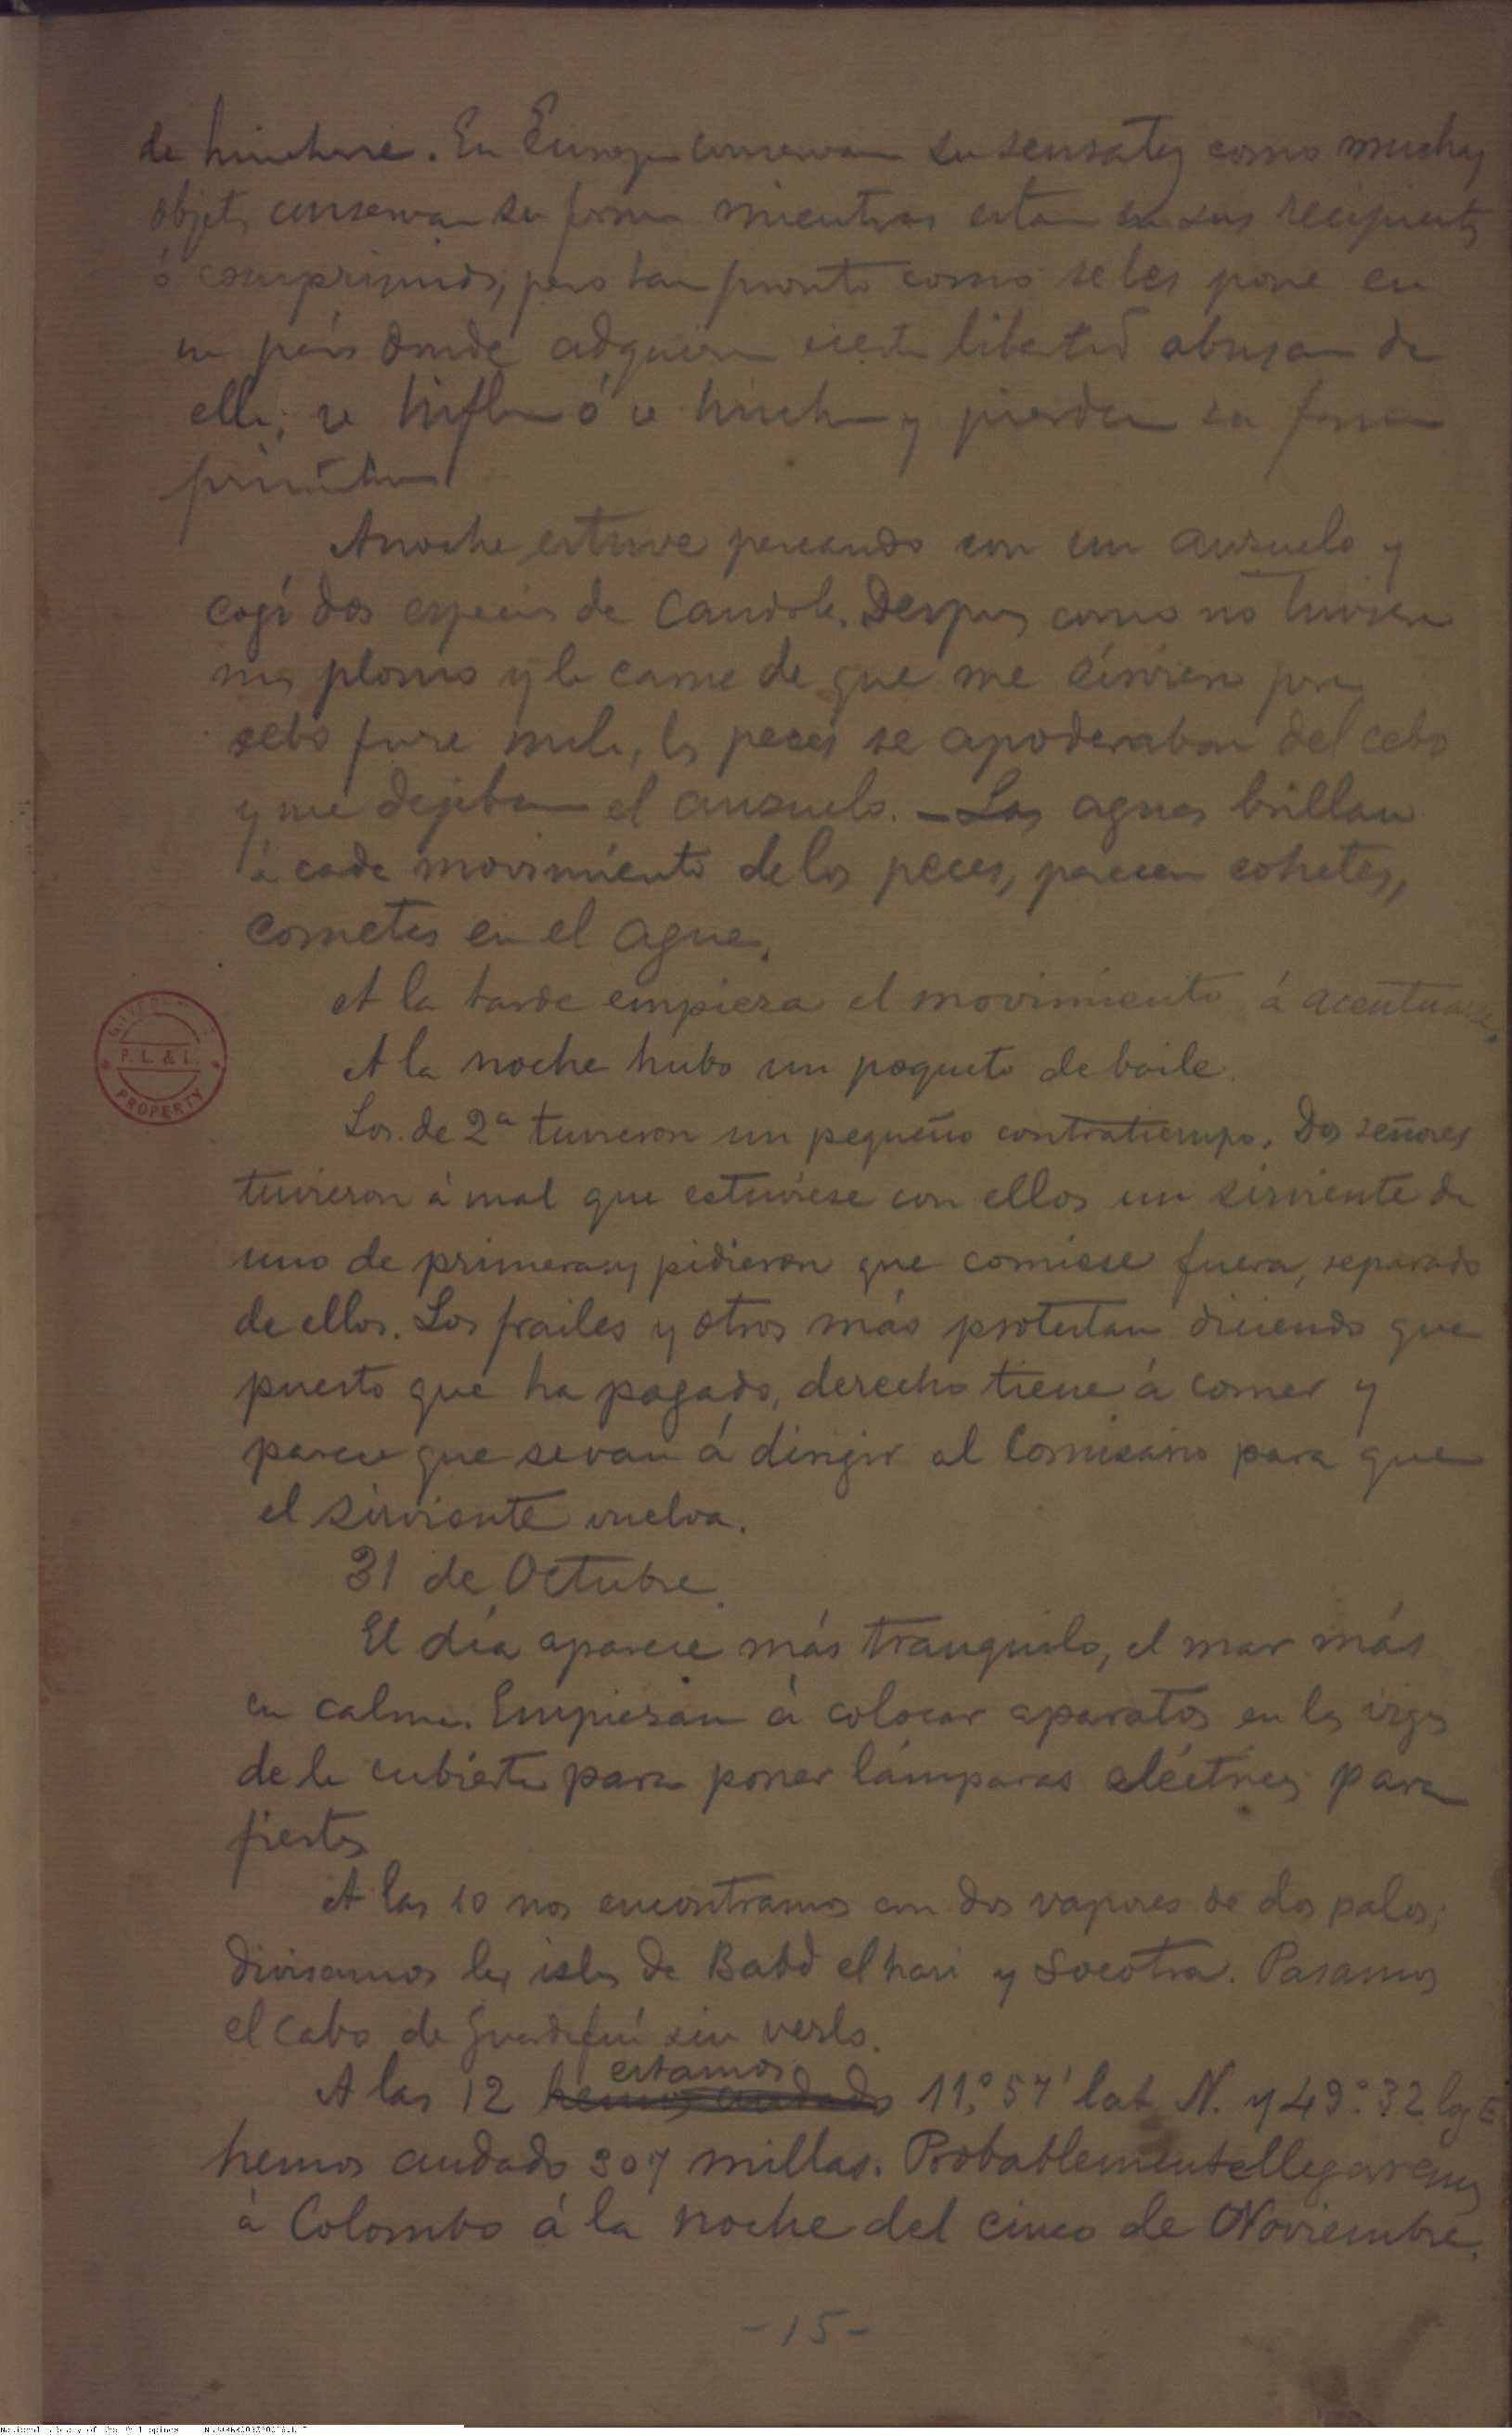 de hincharse. En Europa conservan su sensatez como muchos
objetos conservan su forma mientras estan en sus recipientes
ó comprimidos, pero tan pronto como se les pone en
un país donde adquieren cierta libertad abusan de
ella, se inflan ó se hinchan y pierden su forma
primitiva
Anoche estuve pescando con un anzuelo y
cogí dos especies de Candole. Despues como no tuviera
mas plomo y la carne de que me sirviera para
sebo fuese mala, los peces se apoderaban del cebo
y me dejaban el anzuelo. - Las aguas brillan
á cada movimiento de los peces, parecen cohetes,
cometas en el agua.
A la tarde empieza el movimiento á acentuarse.
A la noche hubo un poquito de baile.
Los de 2ª tuvieron un pequeño contratiempo. Dos señores
tuvieron á mal que estuviese con ellos un sirviente de
uno de primera y pidieron que comiese fuera, separado
de ellos. Los frailes y otros más protestan diciendo que
puesto que ha pagado, derecho tiene á comer y
parece que se van á dirigir al Comisario para que
el sirviente vuelva.
31 de Octubre.
El día aparece más tranquilo, el mar más
en calma. Empiezan á colocar aparatos en las vigas
de la cubierta para poner lámparas eléctricas para
fiestas
A las 10 nos encontramos con dos vapores de dos palos;
divisamos las islas de Babd el hari y Socotra. Pasamos
el cabo de Guardafuí sin verlo.
estamos
A las 12 hemos andado 11.º 57' lat N. y 49º 32 lg E
hemos andado 307 millas. Probablemente llegaremos
á Colombo á la noche del cinco de Noviembre.
-15-
P. L. & L.
PROPERTY
National Library of the Philippines